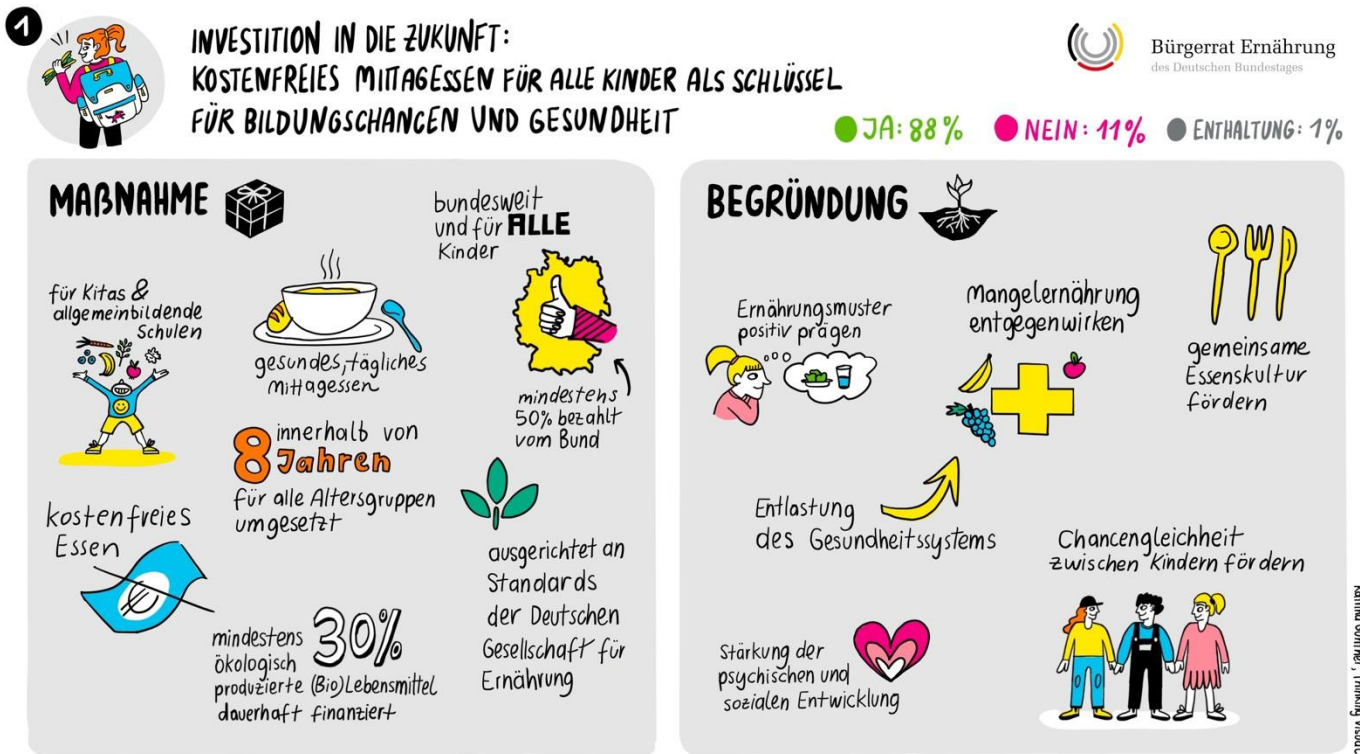 1
INVESTITION IN DIE ZUKUNFT:
KOSTENFREIES MITTAGESSEN FÜR ALLE KINDER ALS SCHLÜSSEL
FÜR BILDUNGSCHANCEN UND GESUNDHEIT
Bürgerrat Ernährung
des Deutschen Bundestages
JA: 88%
NEIN: 11%
ENTHALTUNG: 1%
MAẞNAHME
für Kitas &
allgemeinbildende
Schulen
gesundes, tägliches
Mittagessen
bundesweit
und für ALLE
Kinder
mindestens
50% bezahlt
vom Bund
8 innerhalb von
Jahren
für alle Altersgruppen
umgesetzt
kostenfreies
Essen
€
mindestens 30%
ökologisch
produzierte (Bio)Lebensmittel
dauerhaft finanziert
ausgerichtet an
Standards
der Deutschen
Gesellschaft für
Ernährung
BEGRÜNDUNG
Ernährungsmuster
positiv prägen
Mangelernährung
entgegenwirken
gemeinsame
Essenskultur
fördern
Entlastung
des Gesundheitssystems
Chancengleichheit
zwischen Kindern fördern
Stärkung der
psychischen und
sozialen Entwicklung